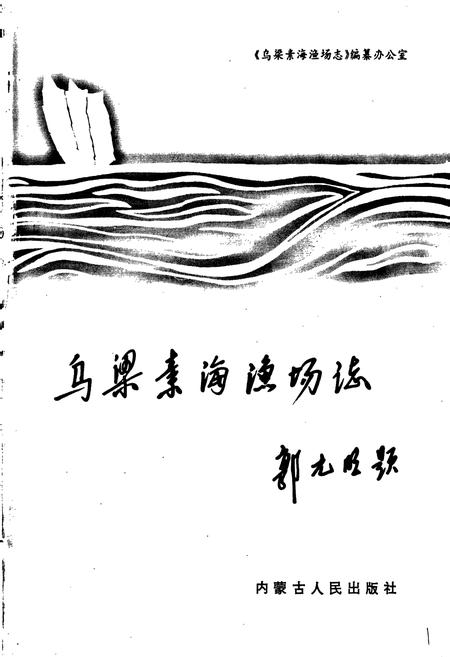 《乌梁素海渔场志》编纂办公室
乌梁素海渔场志
郭尤明题
内蒙古人民出版社